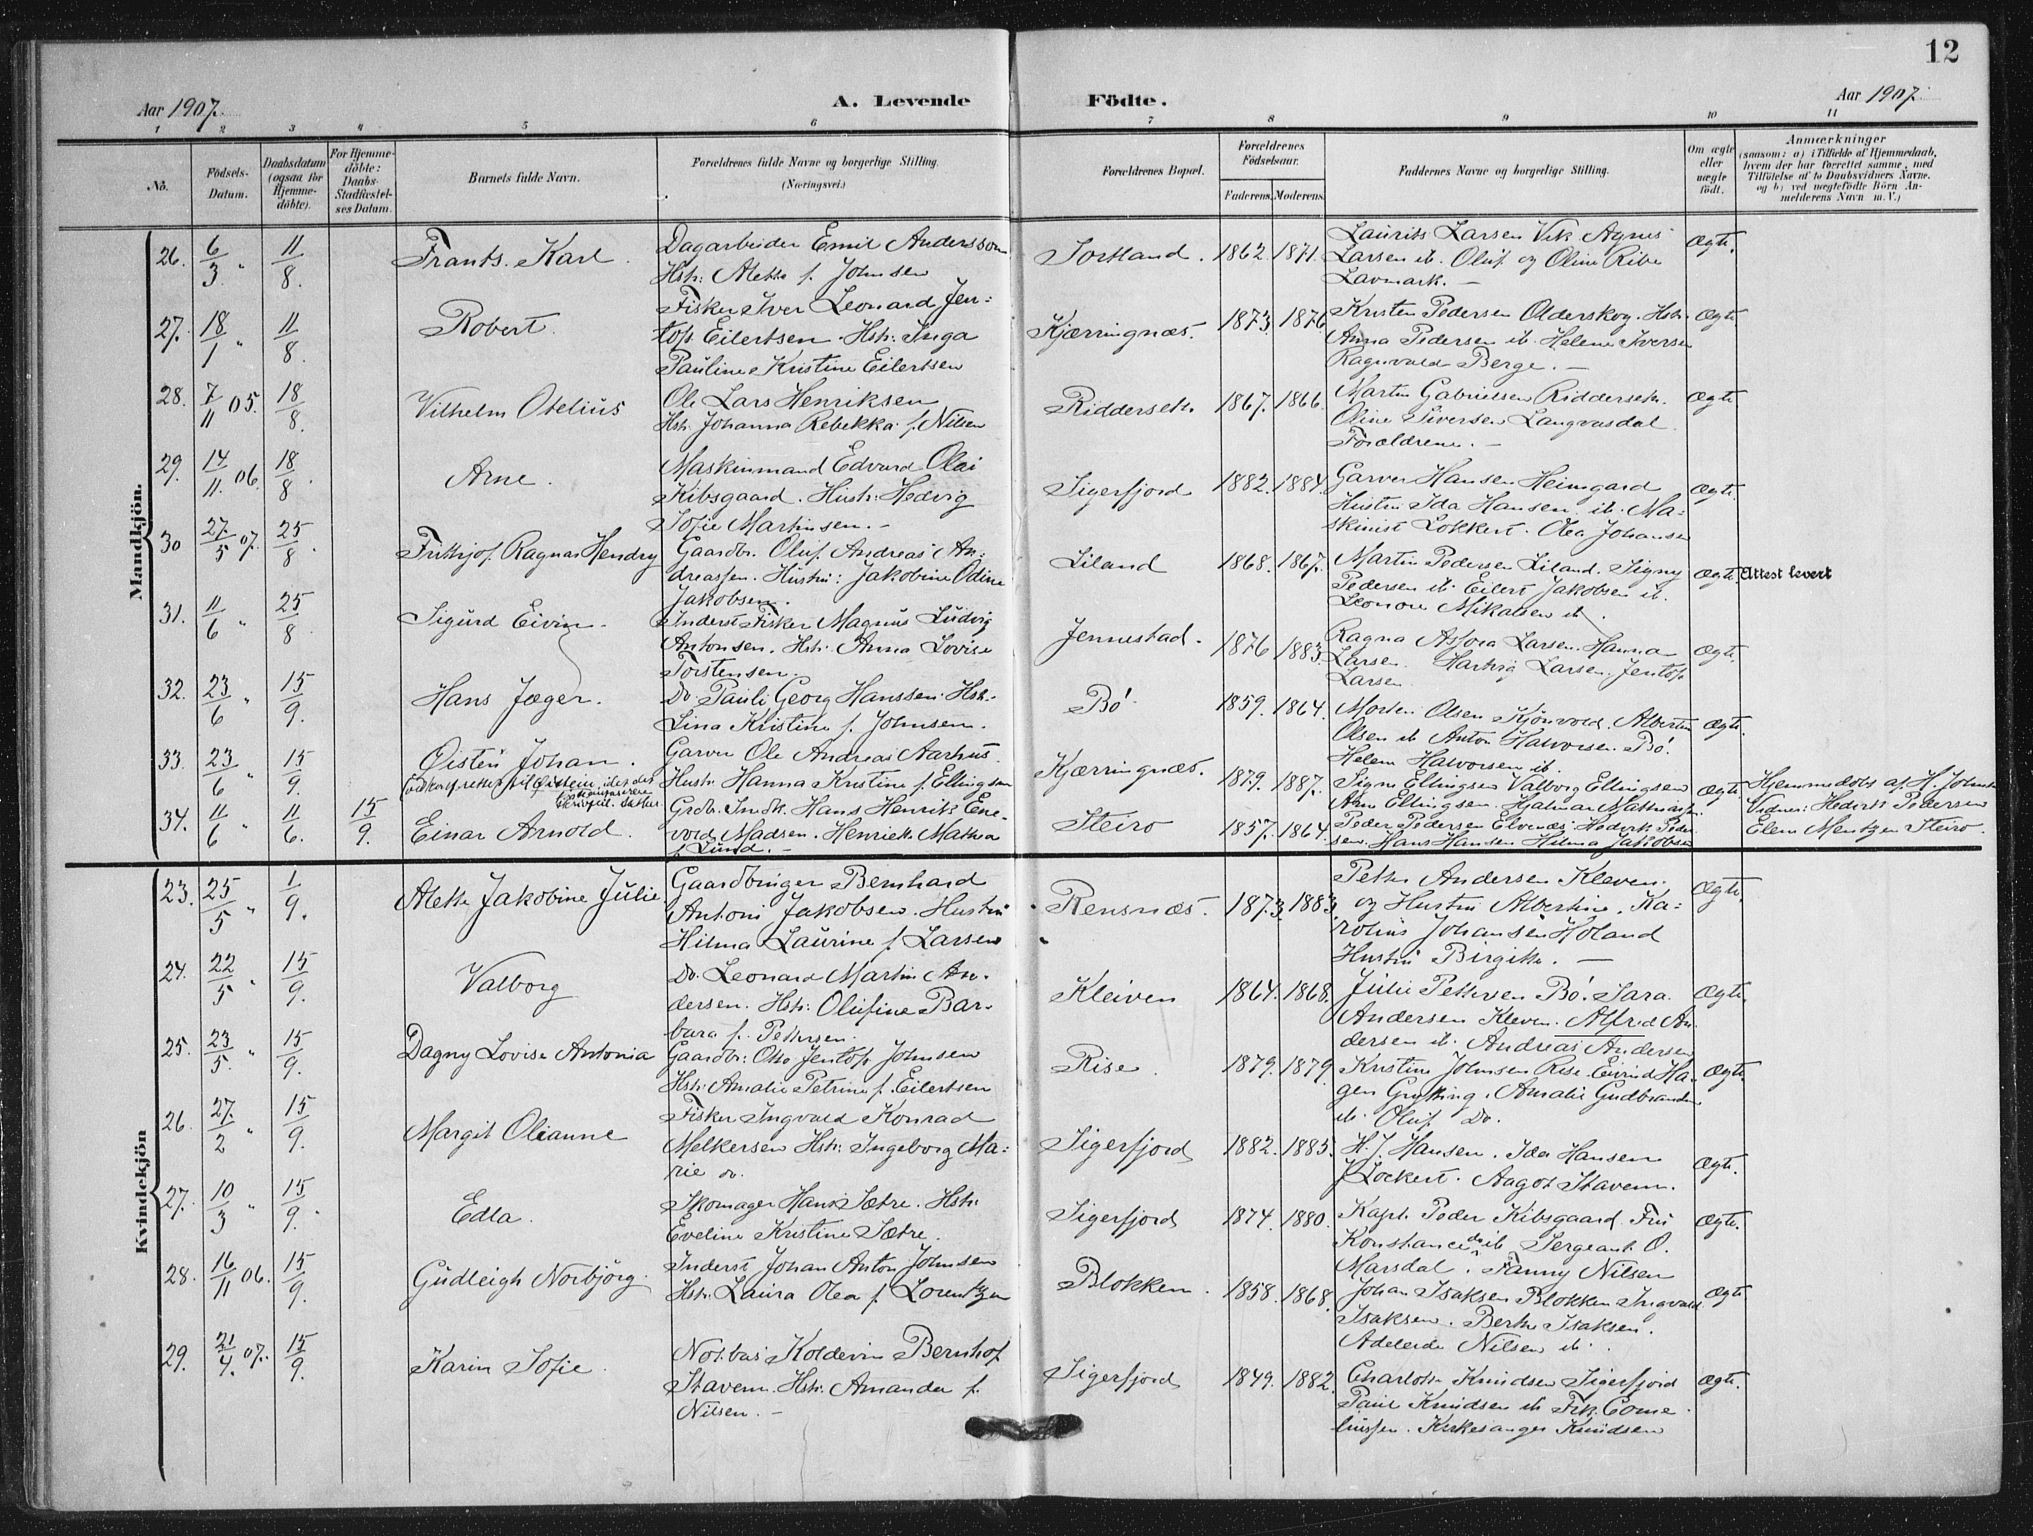 12
Aar 1907.
A. Levende
Födte.
Aar 1907.
1 2 3 4 5 6 7 8 9 10 11
No.
Födsels-
Datum.
Daabsdatum
(ogsaa for
Hjemme-
döbte).
For Hjemme-
döbte:
Daabs-
Stadfæstel-
ses Datum.
Barnets fulde Navn.
Forældrenes fulde Navne og borgerlige Stilling.
(Næringsvei.)
Forældrenes Bopæl.
Forældrenes
Födselsaar.
Faderens. Moderens.
Faddernes Navne og borgerlige Stilling.
Om ægte
eller
uægte
födt.
Anmærkninger
(saasom: a) i Tilfælde af Hjemmedaab,
hvem der har forrettet samme, med
Tilföielse af to Daabsvidners Navne,
og b) ved uægtefödte Börn An-
melderens Navn m. V.)
Mandkjön.
26. 6/3 " 11/8. Frants Karl.
Dagarbeider Emil Anderssen
Hstr: Alette f. Johnsen
Sortland. 1862. 1871.
Laurits Larsen Vik Agnes
Larsen ib. Oluf og Oline Ribe
Lavmark. —
Ægte.
27. 18/1 " 11/8. Robert.
Fisker Iver Leonard Jen=
tof Eilertsen. Hstr: Inga
Pauline Kristine Eilertsen
Kjærringnæs. 1873. 1876.
Kristen Pedersen Olderskog. Hstr.
Anna Pedersen ib. Helene Iversen
Ragnvald Berge. —
Ægte
28. 7/11 05. 18/8. Vilhelm Otelius
Ole Lars Henriksen
Hstr. Johanna Rebekka f. Nilsen
Riddersetr. 1867. 1866.
Martin Gabrielsen Riddersetr.
Oline Siversen Langvasdal
Forældrene. —
Ægte
29. 14/11 06. 18/8. Arne.
Maskinmand Edvard Olai
Kibsgaard. Hustr: Hedvig
Sofie Martinsen. —
Sigerfjord 1882. 1884.
Garver Hansen Heimgard
Hustru Ida Hansen ib. Ma=
skinist Lokkert. Olea Johansen
Ægte.
30 27/5 07. 25/8. Frithjof Ragnar Hendry
Gaardbr. Oluf Andreas An=
dreassen. Hustru: Jakobine Odine
Jakobsen.
Liland 1868. 1867.
Martin Pedersen Liland. Signy
Pedersen ib. Eilert Jakobsen ib.
Leonore Mikalsen ib
Ægte. Attest levert
31. 11/6 " 25/8. Sigurd Eivin.
Inderst Fisker Magnus Ludvig
Antonsen. Hstr: Anna Lovise
Torstensen.
Jennestad. 1876 1883.
Ragna Larsen. Hanna
Larsen. Hartvig Larsen. Jentoft
Larsen
Ægte.
32. 23/6 " 15/9. Hans Jæger.
Do. Pauli Georg Hanssen. Hstr.
Lina Kristine f. Johnsen.
Bö 1859. 1864.
Morten Olsen Kjönvold. Albertine
Olsen ib Anton Halvorsen Bö.
Helene Halvorsen ib.
Ægte.
33. 23/6 " 15/9. Oistein Johan.
Garver Ole Andreas Aarhus.
Hustr. Hanna Kristine f. Ellingsen
Kjærringnæs. 1879. 1887.
Signe Ellingsen Valborg Ellingsen
Arne Ellingsen. Halmar Mathiassen
Ægte.
34. 11/6 " 11/6. 15/9. Einar Arnold.
Grdb. Hans Henrik Ene-
vold Madsen. Henriette Mathea
f. Lund. —
Steiro 1857. 1864.
Peder Pedersen Elvenæs. Hederik Peder
sen. Hans Hansen Hilma Jakobsen
Hjemmedöbt af H. Johnsen
Vidner: Hederik Pedersen
Elen Mentzen Steiro.
Kvindekjön
23. 25/5 " 1/9. Alette Jakobine Julie
Gaardbruger Bernhard
Antoni Jakobsen. Hustru
Hilma Laurine f. Larsen
Rensnæs. 1873. 1883.
Petter Andersen Kleven.
og Hustru Albertine. Ka=
rolius Johansen Holand
Hustru Birgitte. —
Ægte.
24. 22/5 " 15/9. Valborg
Do. Leonard Martin An-
dersen. Hstr: Olufine Bar-
bara f. Pettersen.
Kleiven 1864. 1868.
Julie Pettersen Bö. Sara
Andersen Kleven. Alfred An
dersen ib. Andreas Andersen
Ægte.
25. 23/5. " 15/9. Dagny Lovise Antonia
Gaardbr: Otto Jentoft Johnsen
Hstr: Amalie Petrine f. Eilertsen
Rise. 1879. 1879.
Kristine Johnsen Rise. Eivind Ha-
gen Gryting. Amalie Gudbrandsen
ib. Oluf Do.
Ægte.
26. 27./2 " 15/9. Margit Olianne
Fisker Ingvald Konrad
Melkersen Hstr: Ingeborg Ma=
rie do.
Sigerfjord 1882. 1885.
H. J. Hansen. Ida Hansen
J Lockert. Aagot Stavem.
Ægte.
27. 10/3 " 15/9. Edla.
Skomager Hans Sætre. Hstr:
Eveline Kristine Sætre.
Sigerfjord 1874. 1880.
Kapt. Peder Kibsgaard. Fru
Konstance do ib Sergeant O.
Marsdal. Fanny Nilsen
Ægte.
28. 16/11 06. 15/9. Gudleigh Norbjörg.
Inderst Johan Anton Johnsen
Hstr: Laura Olea f. Lorentzen
Blokken. 1858. 1868.
Johan Isaksen Blokken Ingvald
Isaksen. Berthe Isaksen.
Adeleide Nilsen ib.
Ægte
29. 21/4. 07. 15/9. Karin Sofie.
Notbas Koldevin Bernhof
Stavem. Hstr: Amanda f.
Nilsen. —
Sigerfjord 1849. 1882.
Charlotte Knudsen Sigerfjord
Paul Knudsen ib Frk. Corne
liussen. Kirkesanger Knudsen
Ægte.